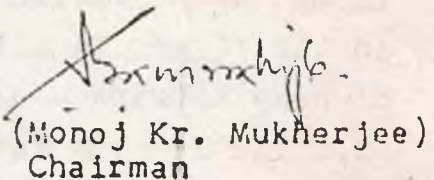 (Monoj Kr. Mukherjee)
Chairman